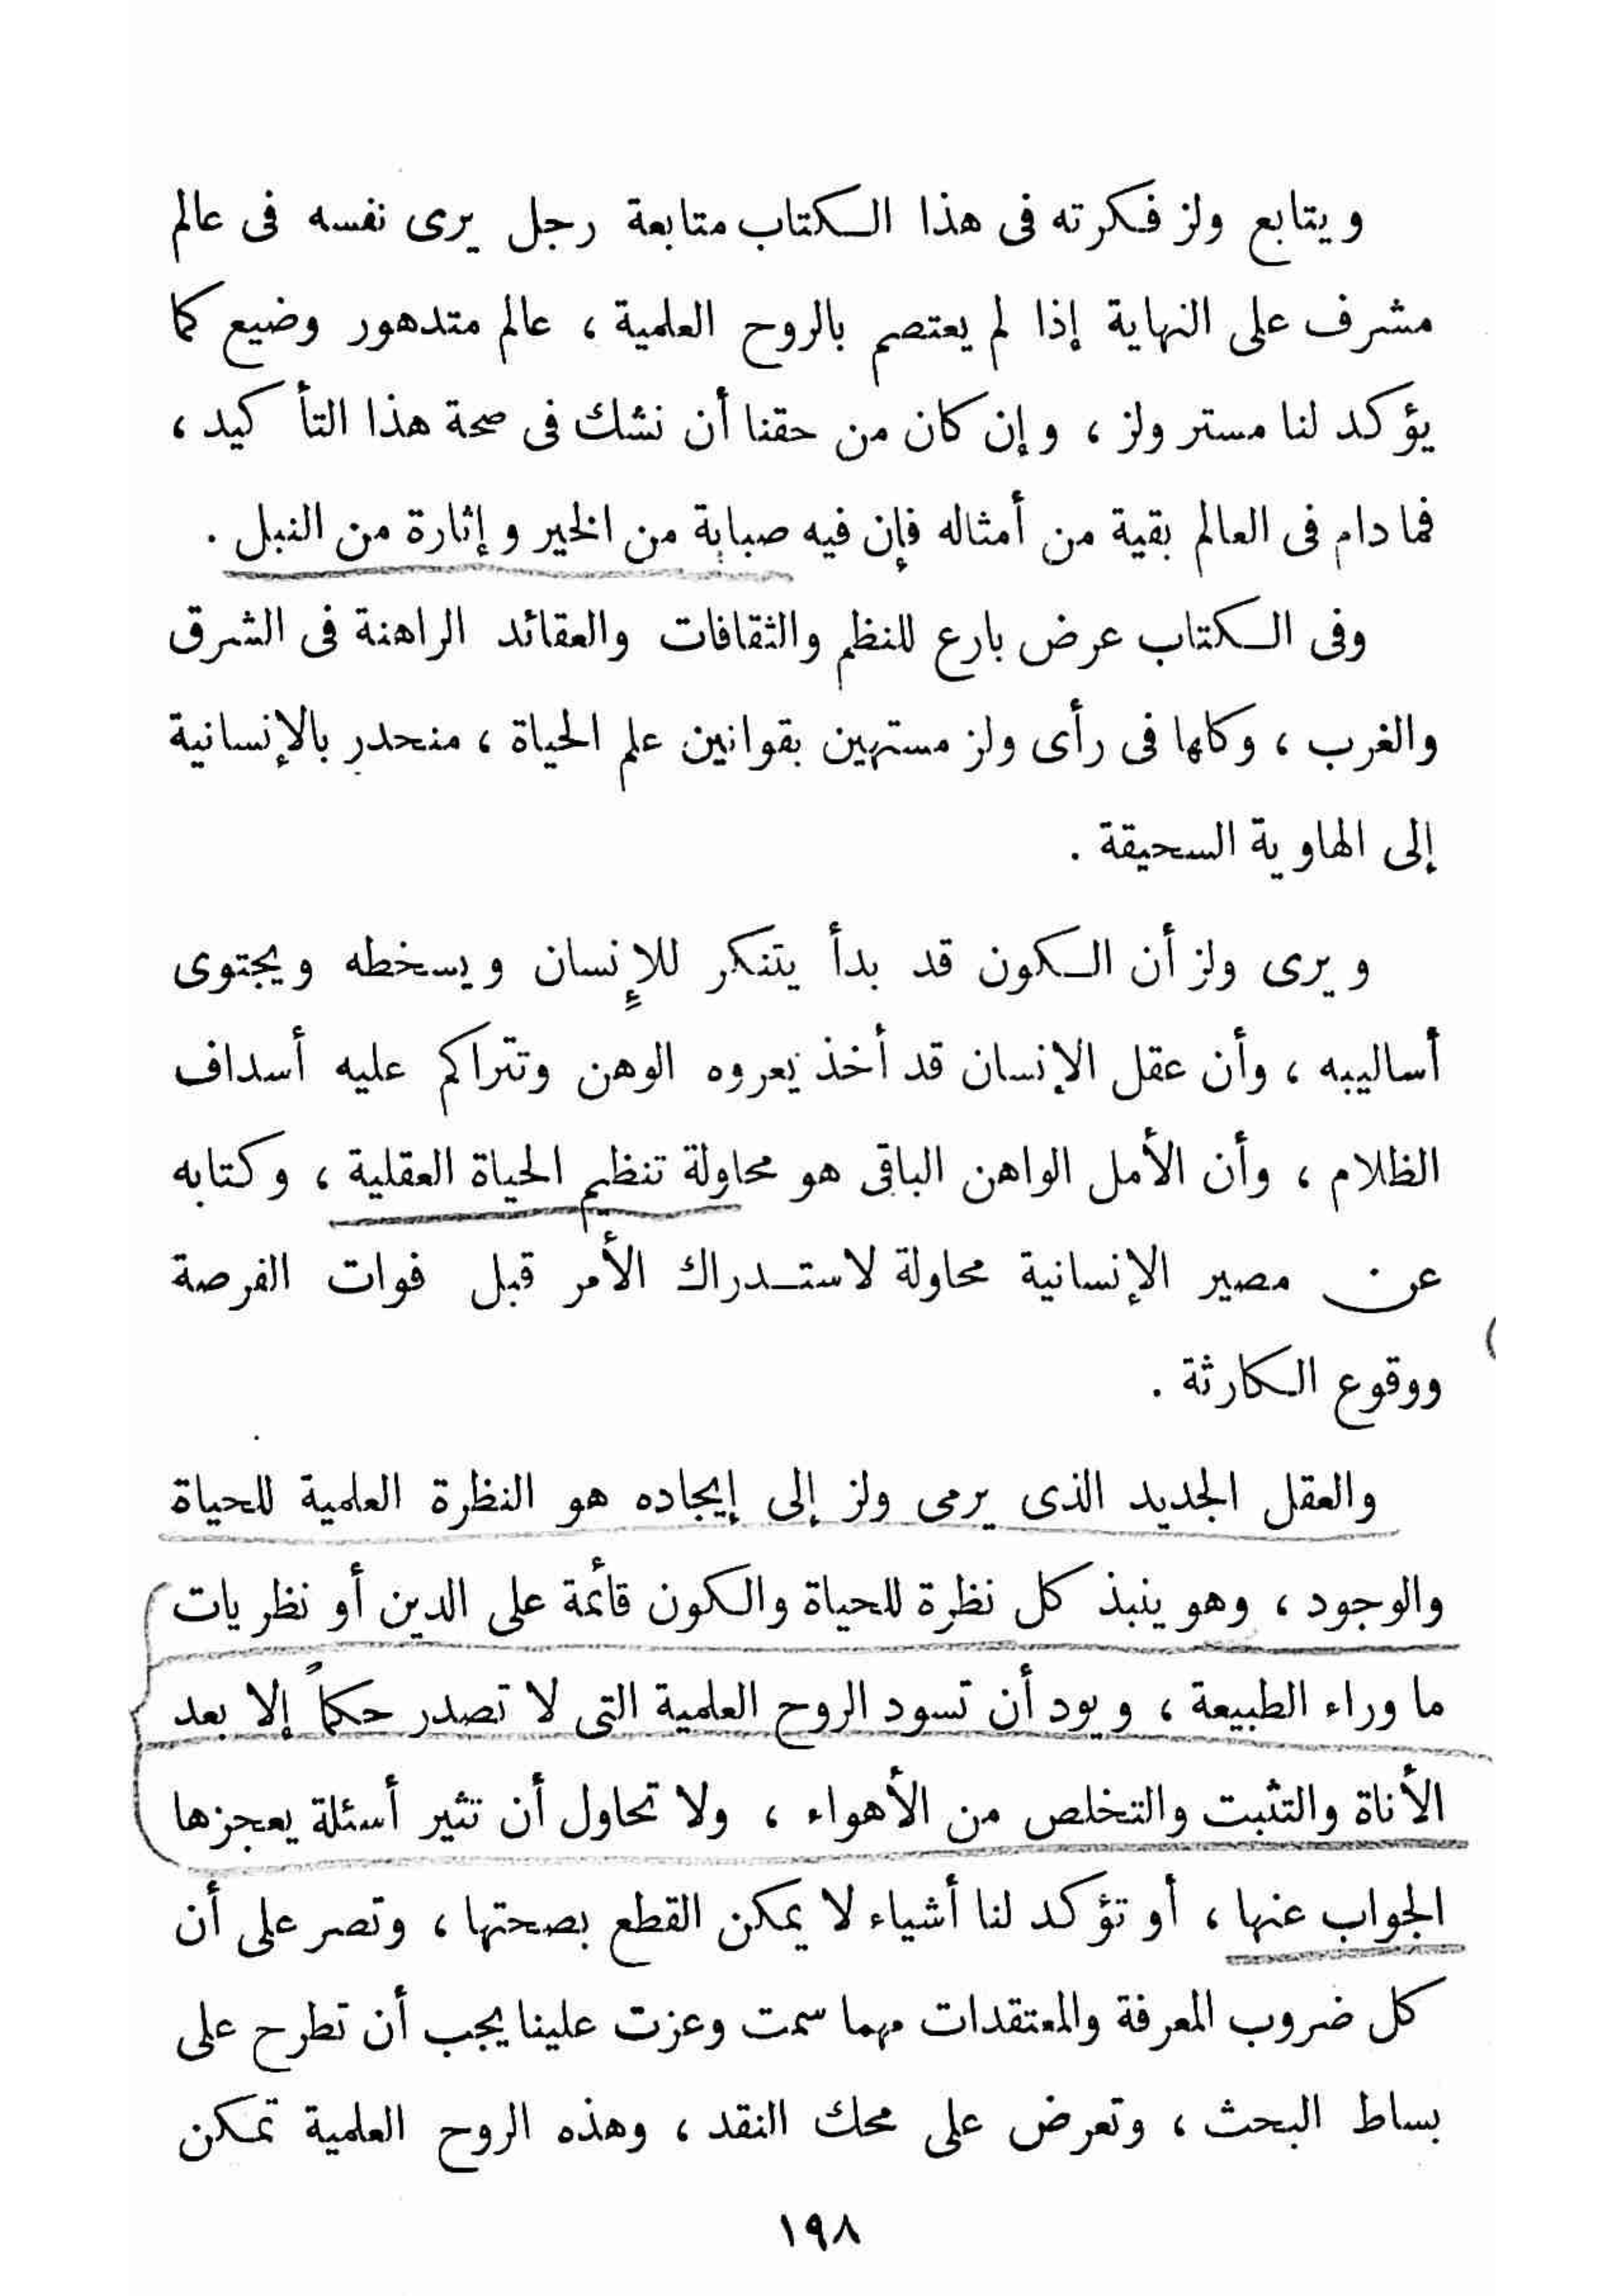 ويتابع ولز فكرته فى هذا الكتاب متابعة رجل يرى نفسه فى عالم
مشرف على النهاية إذا لم يعتصم بالروح العلمية ، عالم متدهور وضيع كما
يؤكد لنا مستر ولز ، وإن كان من حقنا أن نشك فى صحة هذا التأكيد ،
فما دام فى العالم بقية من أمثاله فإن فيه صبابة من الخير وإثارة من النبل .
وفى الكتاب عرض بارع للنظم والثقافات والعقائد الراهنة فى الشرق
والغرب ، وكلها فى رأى ولز مستهين بقوانين علم الحياة ، منحدر بالإنسانية
إلى الهاوية السحيقة .
ويرى ولز أن الكون قد بدأ يتنكر للإنسان ويسخطه ويجتوى
أساليبه ، وأن عقل الإنسان قد أخذ يعروه الوهن وتتراكم عليه أسداف
الظلام ، وأن الأمل الواهن الباقى هو محاولة تنظيم الحياة العقلية ، وكتابه
عن مصير الإنسانية محاولة لاستدراك الأمر قبل فوات الفرصة
ووقوع الكارثة .
والعقل الجديد الذى يرمى ولز إلى إيجاده هو النظرة العلمية للحياة
والوجود ، وهو ينبذ كل نظرة للحياة والكون قائمة على الدين أو نظريات
ما وراء الطبيعة ، ويود أن تسود الروح العلمية التى لا تصدر حكماً إلا بعد
الأناة والتثبت والتخلص من الأهواء ، ولا تحاول أن تثير أسئلة يعجزها
الجواب عنها ، أو تؤكد لنا أشياء لا يمكن القطع بصحتها ، وتصر على أن
كل ضروب المعرفة والمعتقدات مهما سمت وعزت علينا يجب أن تطرح على
بساط البحث ، وتعرض على محك النقد ، وهذه الروح العلمية تمكن
١٩٨